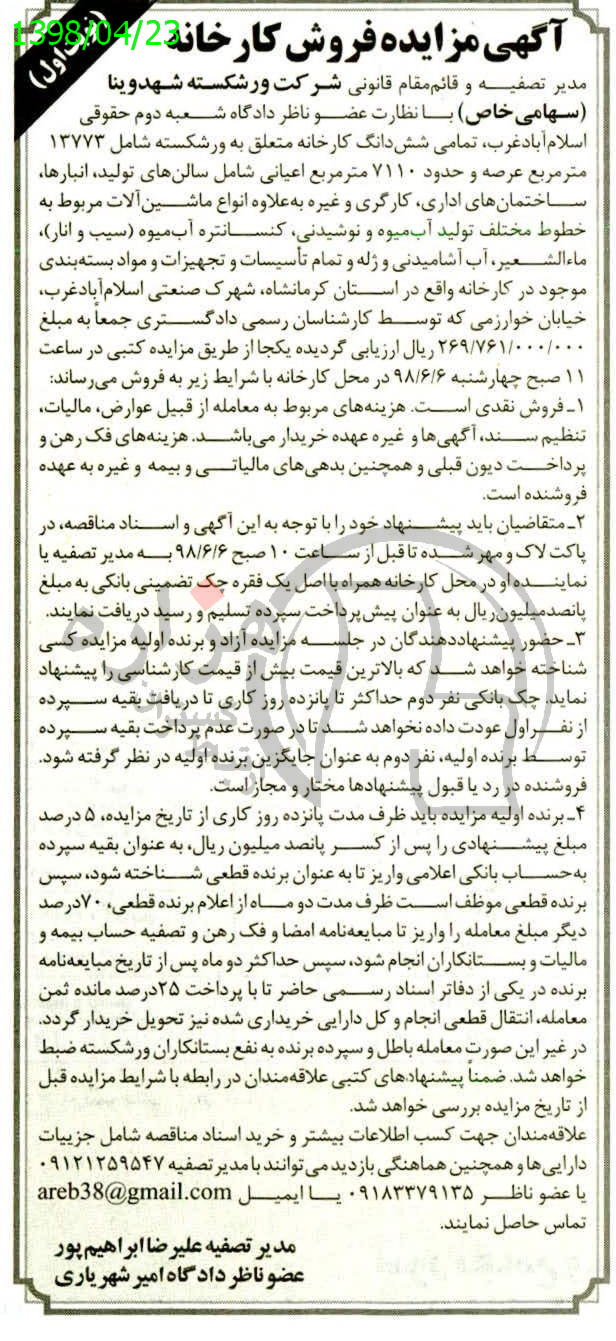 1398/04/23
(نوبت اول)
آگهی مزایده فروش کارخانه
مدیر تصفیه و قائم‌مقام قانونی شرکت ورشکسته شهدوینا
(سهامی خاص) با نظارت عضو ناظر دادگاه شعبه دوم حقوقی
اسلام‌آبادغرب، تمامی شش‌دانگ کارخانه متعلق به ورشکسته شامل ۱۳۷۷۳
مترمربع عرصه و حدود ۷۱۱۰ مترمربع اعیانی شامل سالن‌های تولید، انبارها،
ساختمان‌های اداری، کارگری و غیره به‌علاوه انواع ماشین‌آلات مربوط به
خطوط مختلف تولید آب‌میوه و نوشیدنی، کنسانتره آب‌میوه (سیب و انار)،
ماءالشعیر، آب آشامیدنی و ژله و تمام تأسیسات و تجهیزات و مواد بسته‌بندی
موجود در کارخانه واقع در استان کرمانشاه، شهرک صنعتی اسلام‌آبادغرب،
خیابان خوارزمی که توسط کارشناسان رسمی دادگستری جمعاً به مبلغ
۲۶۹/۷۶۱/۰۰۰/۰۰۰ ریال ارزیابی گردیده یکجا از طریق مزایده کتبی در ساعت
۱۱ صبح چهارشنبه ۹۸/۶/۶ در محل کارخانه با شرایط زیر به فروش می‌رساند:
۱ـ فروش نقدی است. هزینه‌های مربوط به معامله از قبیل عوارض، مالیات،
تنظیم سند، آگهی‌ها و غیره عهده خریدار می‌باشد. هزینه‌های فک رهن و
پرداخت دیون قبلی و همچنین بدهی‌های مالیاتی و بیمه و غیره به عهده
فروشنده است.
۲ـ متقاضیان باید پیشنهاد خود را با توجه به این آگهی و اسناد مناقصه، در
پاکت لاک و مهر شده تا قبل از ساعت ۱۰ صبح ۹۸/۶/۶ به مدیر تصفیه یا
نماینده او در محل کارخانه همراه با اصل یک فقره چک تضمینی بانکی به مبلغ
پانصدمیلیون‌ریال به عنوان پیش‌پرداخت سپرده تسلیم و رسید دریافت نمایند.
۳ـ حضور پیشنهاددهندگان در جلسه مزایده آزاد و برنده اولیه مزایده کسی
شناخته خواهد شد که بالاترین قیمت بیش از قیمت کارشناسی را پیشنهاد
نماید. چک بانکی نفر دوم حداکثر تا پانزده روز کاری تا دریافت بقیه سپرده
از نفر اول عودت داده نخواهد شد تا در صورت عدم پرداخت بقیه سپرده
توسط برنده اولیه، نفر دوم به عنوان جایگزین برنده اولیه در نظر گرفته شود.
فروشنده در رد یا قبول پیشنهادها مختار و مجاز است.
۴ـ برنده اولیه مزایده باید ظرف مدت پانزده روز کاری از تاریخ مزایده، ۵ درصد
مبلغ پیشنهادی را پس از کسر پانصد میلیون ریال، به عنوان بقیه سپرده
به‌حساب بانکی اعلامی واریز تا به عنوان برنده قطعی شناخته شود، سپس
برنده قطعی موظف است ظرف مدت دو ماه از اعلام برنده قطعی، ۷۰درصد
دیگر مبلغ معامله را واریز تا مبایعه‌نامه امضا و فک رهن و تصفیه حساب بیمه و
مالیات و بستانکاران انجام شود، سپس حداکثر دو ماه پس از تاریخ مبایعه‌نامه
برنده در یکی از دفاتر اسناد رسمی حاضر تا با پرداخت ۲۵درصد مانده ثمن
معامله، انتقال قطعی انجام و کل دارایی خریداری شده نیز تحویل خریدار گردد.
در غیر این صورت معامله باطل و سپرده برنده به نفع بستانکاران ورشکسته ضبط
خواهد شد. ضمناً پیشنهادهای کتبی علاقه‌مندان در رابطه با شرایط مزایده قبل
از تاریخ مزایده بررسی خواهد شد.
علاقه‌مندان جهت کسب اطلاعات بیشتر و خرید اسناد مناقصه شامل جزییات
دارایی‌ها و همچنین هماهنگی بازدید می‌توانند با مدیر تصفیه ۰۹۱۲۱۲۵۹۵۴۷
یا عضو ناظر ۰۹۱۸۳۳۷۹۱۳۵ یا ایمیل areb38@gmail.com
تماس حاصل نمایند.
مدیر تصفیه علیرضا ابراهیم‌پور
عضو ناظر دادگاه امیر شهریاری